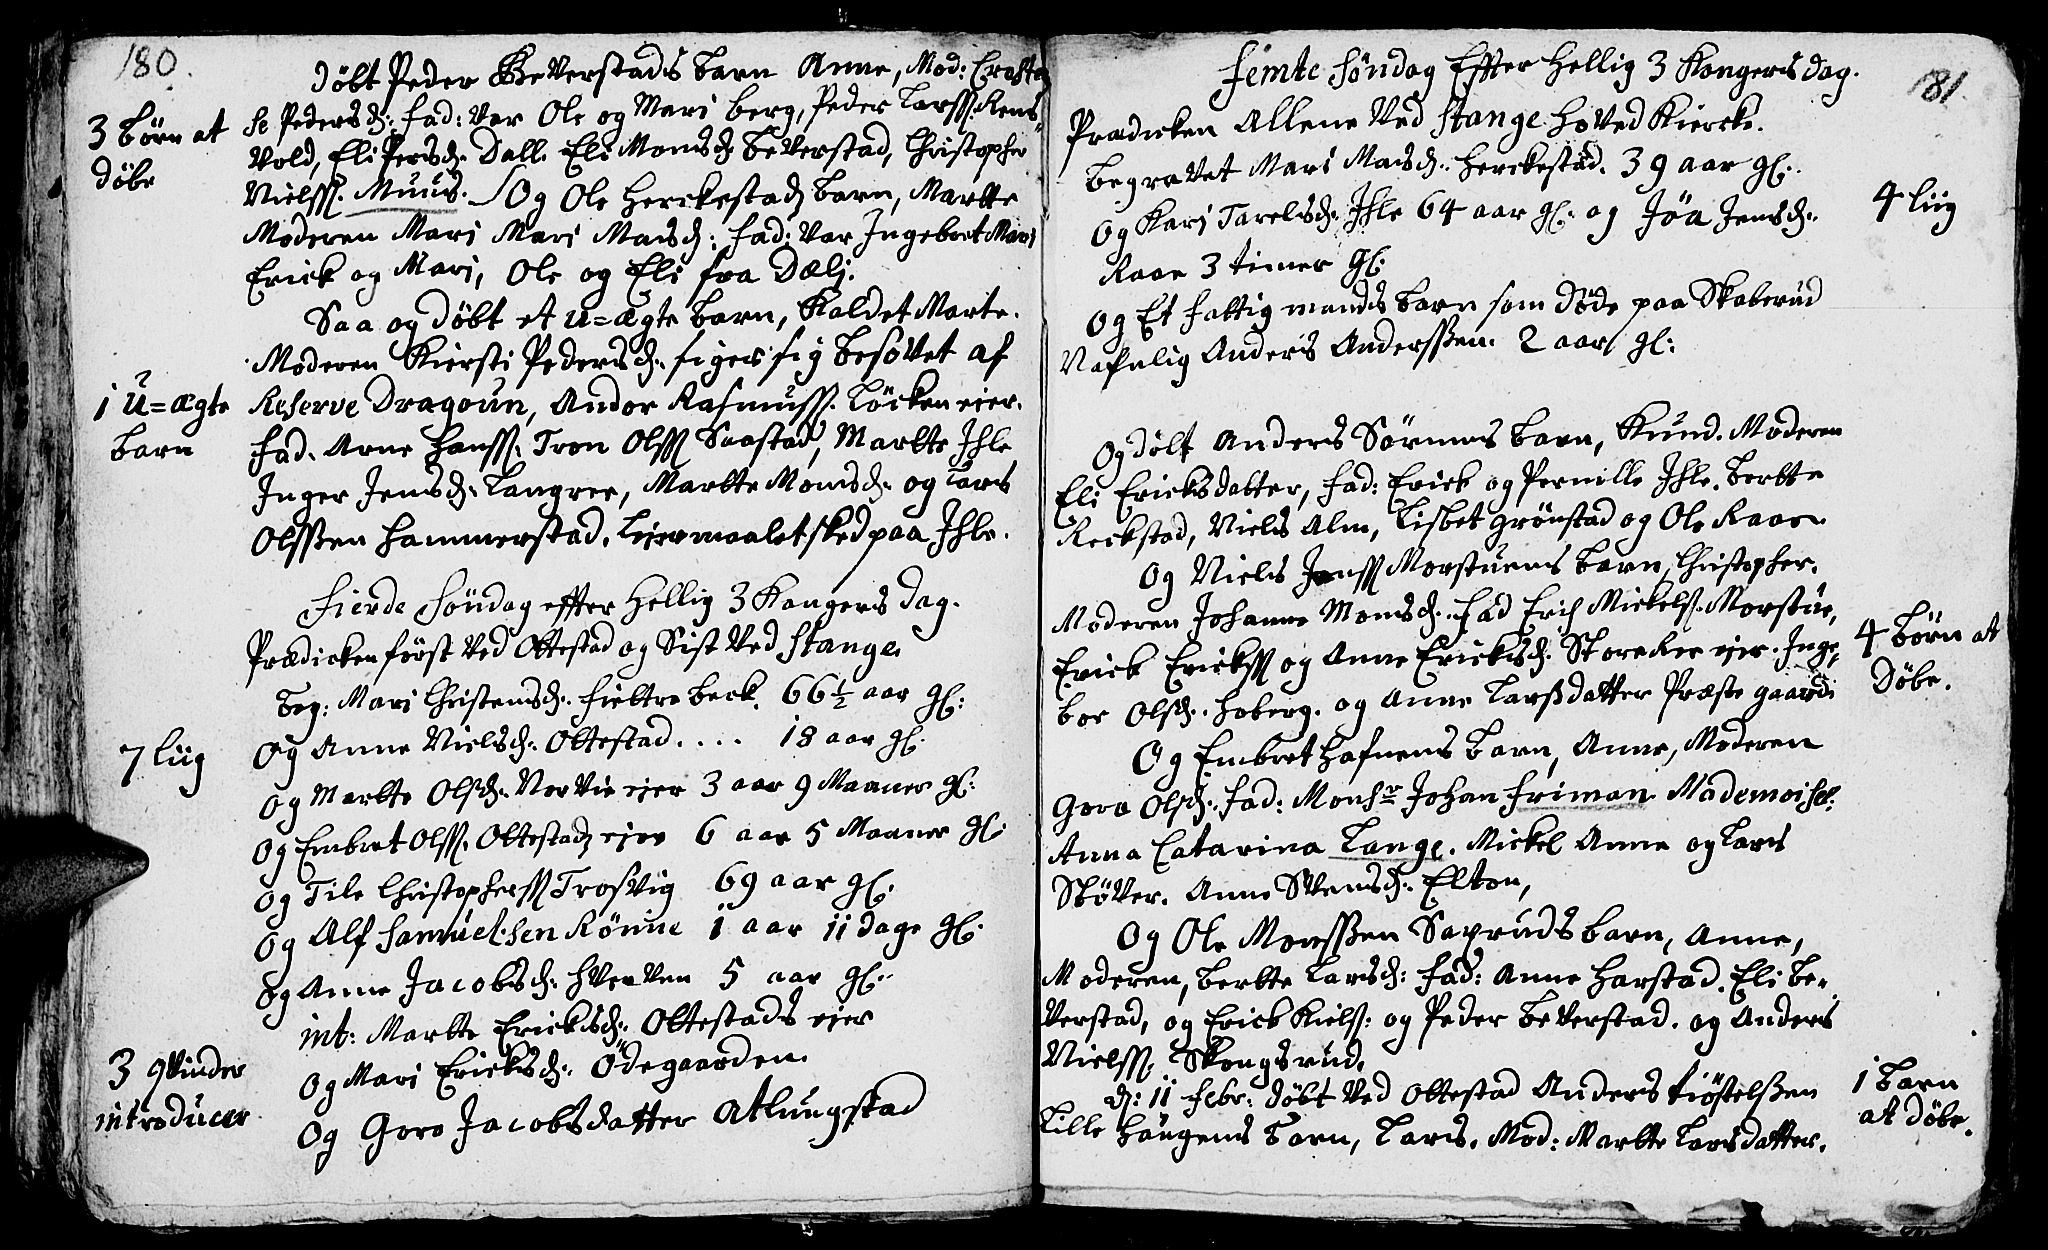 180.
Döbt Peder Beverstads Barn Anne, Mod:
3 Börn at
Döbe
se Pedersd: fad: var Ole og Mari Berg, Peder Larss. Rens-
vold, Eli Persd. Dall. Eli Monsd. Beverstad, Christopher
Nielss. Muus. Og Ole Herckestads Barn, Marthe
Moderen Mari Mari Madsd: fad: var Ingebret Mari
Erick og Mari, Ole og Eli fra Dælj.
Saa og döbt et u=ægte Barn, Kaldet Marte.
Moderen Kiersti Pedersd. siger sig besovet af
1 u=ægte
Barn
Reserve Dragoun, Andor Rasmuss. Löcken ejer.
fad. Arne Hanss. Tron Olss Saastad, Marthe Ihle
Inger Jensd. Langeree, Marthe Monsd. og Lars
Olssen Hammerstad. Leiermaalet skeed paa Ihle.
Fierde Söndag effter Hellig 3 Kongers dag.
Prædicken först ved Ottestad og Sist ved Stange.
Beg: Mari Christensd. Fieltre beck. 66½ aar gl:
7 liig
Og Anne Nielsd. Ottestad.... 18 aar gl.
og Marthe Olsd. Norvie ejer 3 aar 9 Maaner gl:
Og Embret Olss. Ottestads ejer 6 aar 5 Maaner gl:
og Tile Christopherss Trosvig 69 aar gl.
og Alf Samuelsen Rönne 1 aar 11 dage gl.
og Anne Jacobsd. Hverven 5 aar gl.
int: Marthe Ericksd. Ottestads ejer
3 qvinder
introducer
Og Mari Ericksd. Ödegaarden.
Og Goro Jacobsdatter Atlungstad
181.
Femte Söndag Effter Hellig 3 Kongers dag.
Prædicken Allene Ved Stange Hoved Kiercke.
Begravet Mari Madsd. Herckestad. 39 aar gl.
4 liig
og Kari Tarelsd. Ihle 64 aar gl. og Jöa Jensd.
Raar 3 timer gl.
og Et fattig mands Barn som döde paa Skaberud
Nafnlig Anders Anderssen. 2 aar gl:
Og döbt Anders Sörums Barn, Knud. Moderen
Eli Ericksdatter, fad: Erick og Pernille Ihle. Berthe
Reckstad, Niels Alm, Lisbet Grönstad og Ole Raar
Og Niels Jenss Morstuens Barn, Christopher.
Moderen Johanne Monsd. fad Erich Mickels. Morstue,
4 Börn at
Döbe.
Erick Erickss og Anne Ericksd. Storeree ejer. Inge-
bor Olsd. Hoberg. og Anne Larsdatter Præste gaard
Og Embret Hafnens Barn, Anne, Moderen
Goro Olsd. fad: Monsr Johan Friman Mademoisel.
Anna Catarina Lange. Mickel Anne og Lars
Stöver. Anne Svensd. Elton,
Og Ole Monssen Saxruds barn, Anne,
Moderen, Berthe Larsd: fad: Anne Harstad. Eli Be-
verstad, og Erick Kiels: og Peder Beverstad. og Anders
Nielss. Skongsrud.
d: 11 febr: döbt ved Ottestad Anders Tiöstelssen
1 Barn
at Döbe.
Lille Haugens Barn, Lars. Mod: Marthe Larsdatter.